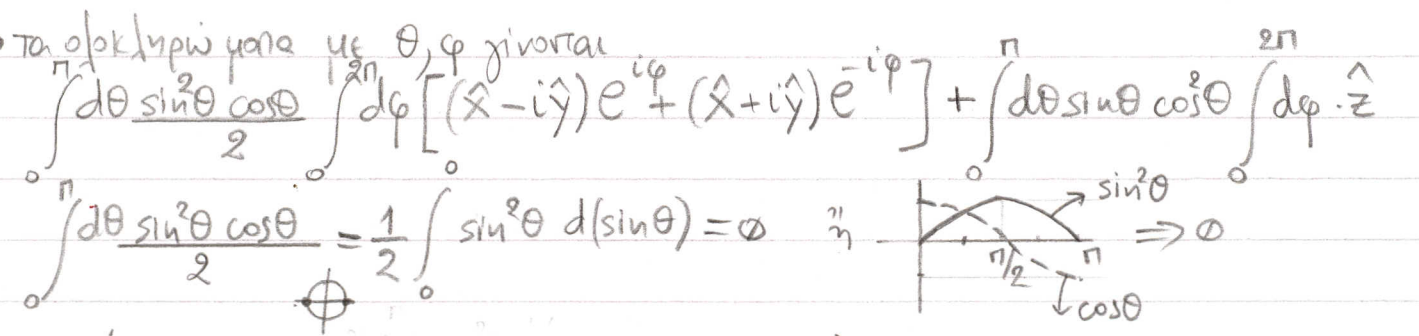 • τα ολοκληρώματα με θ, φ γίνονται
∫₀^π dθ (sin²θ cosθ)/2 ∫₀^{2π} dφ [(x̂ - iŷ) e^{iφ} + (x̂ + iŷ) e^{-iφ}] + ∫₀^π dθ sinθ cos²θ ∫₀^{2π} dφ · ẑ
∫₀^π dθ (sin²θ cosθ)/2 = 1/2 ∫₀ sin²θ d(sinθ) = 0 ή sin²θ π/2 π cosθ ⇒ 0